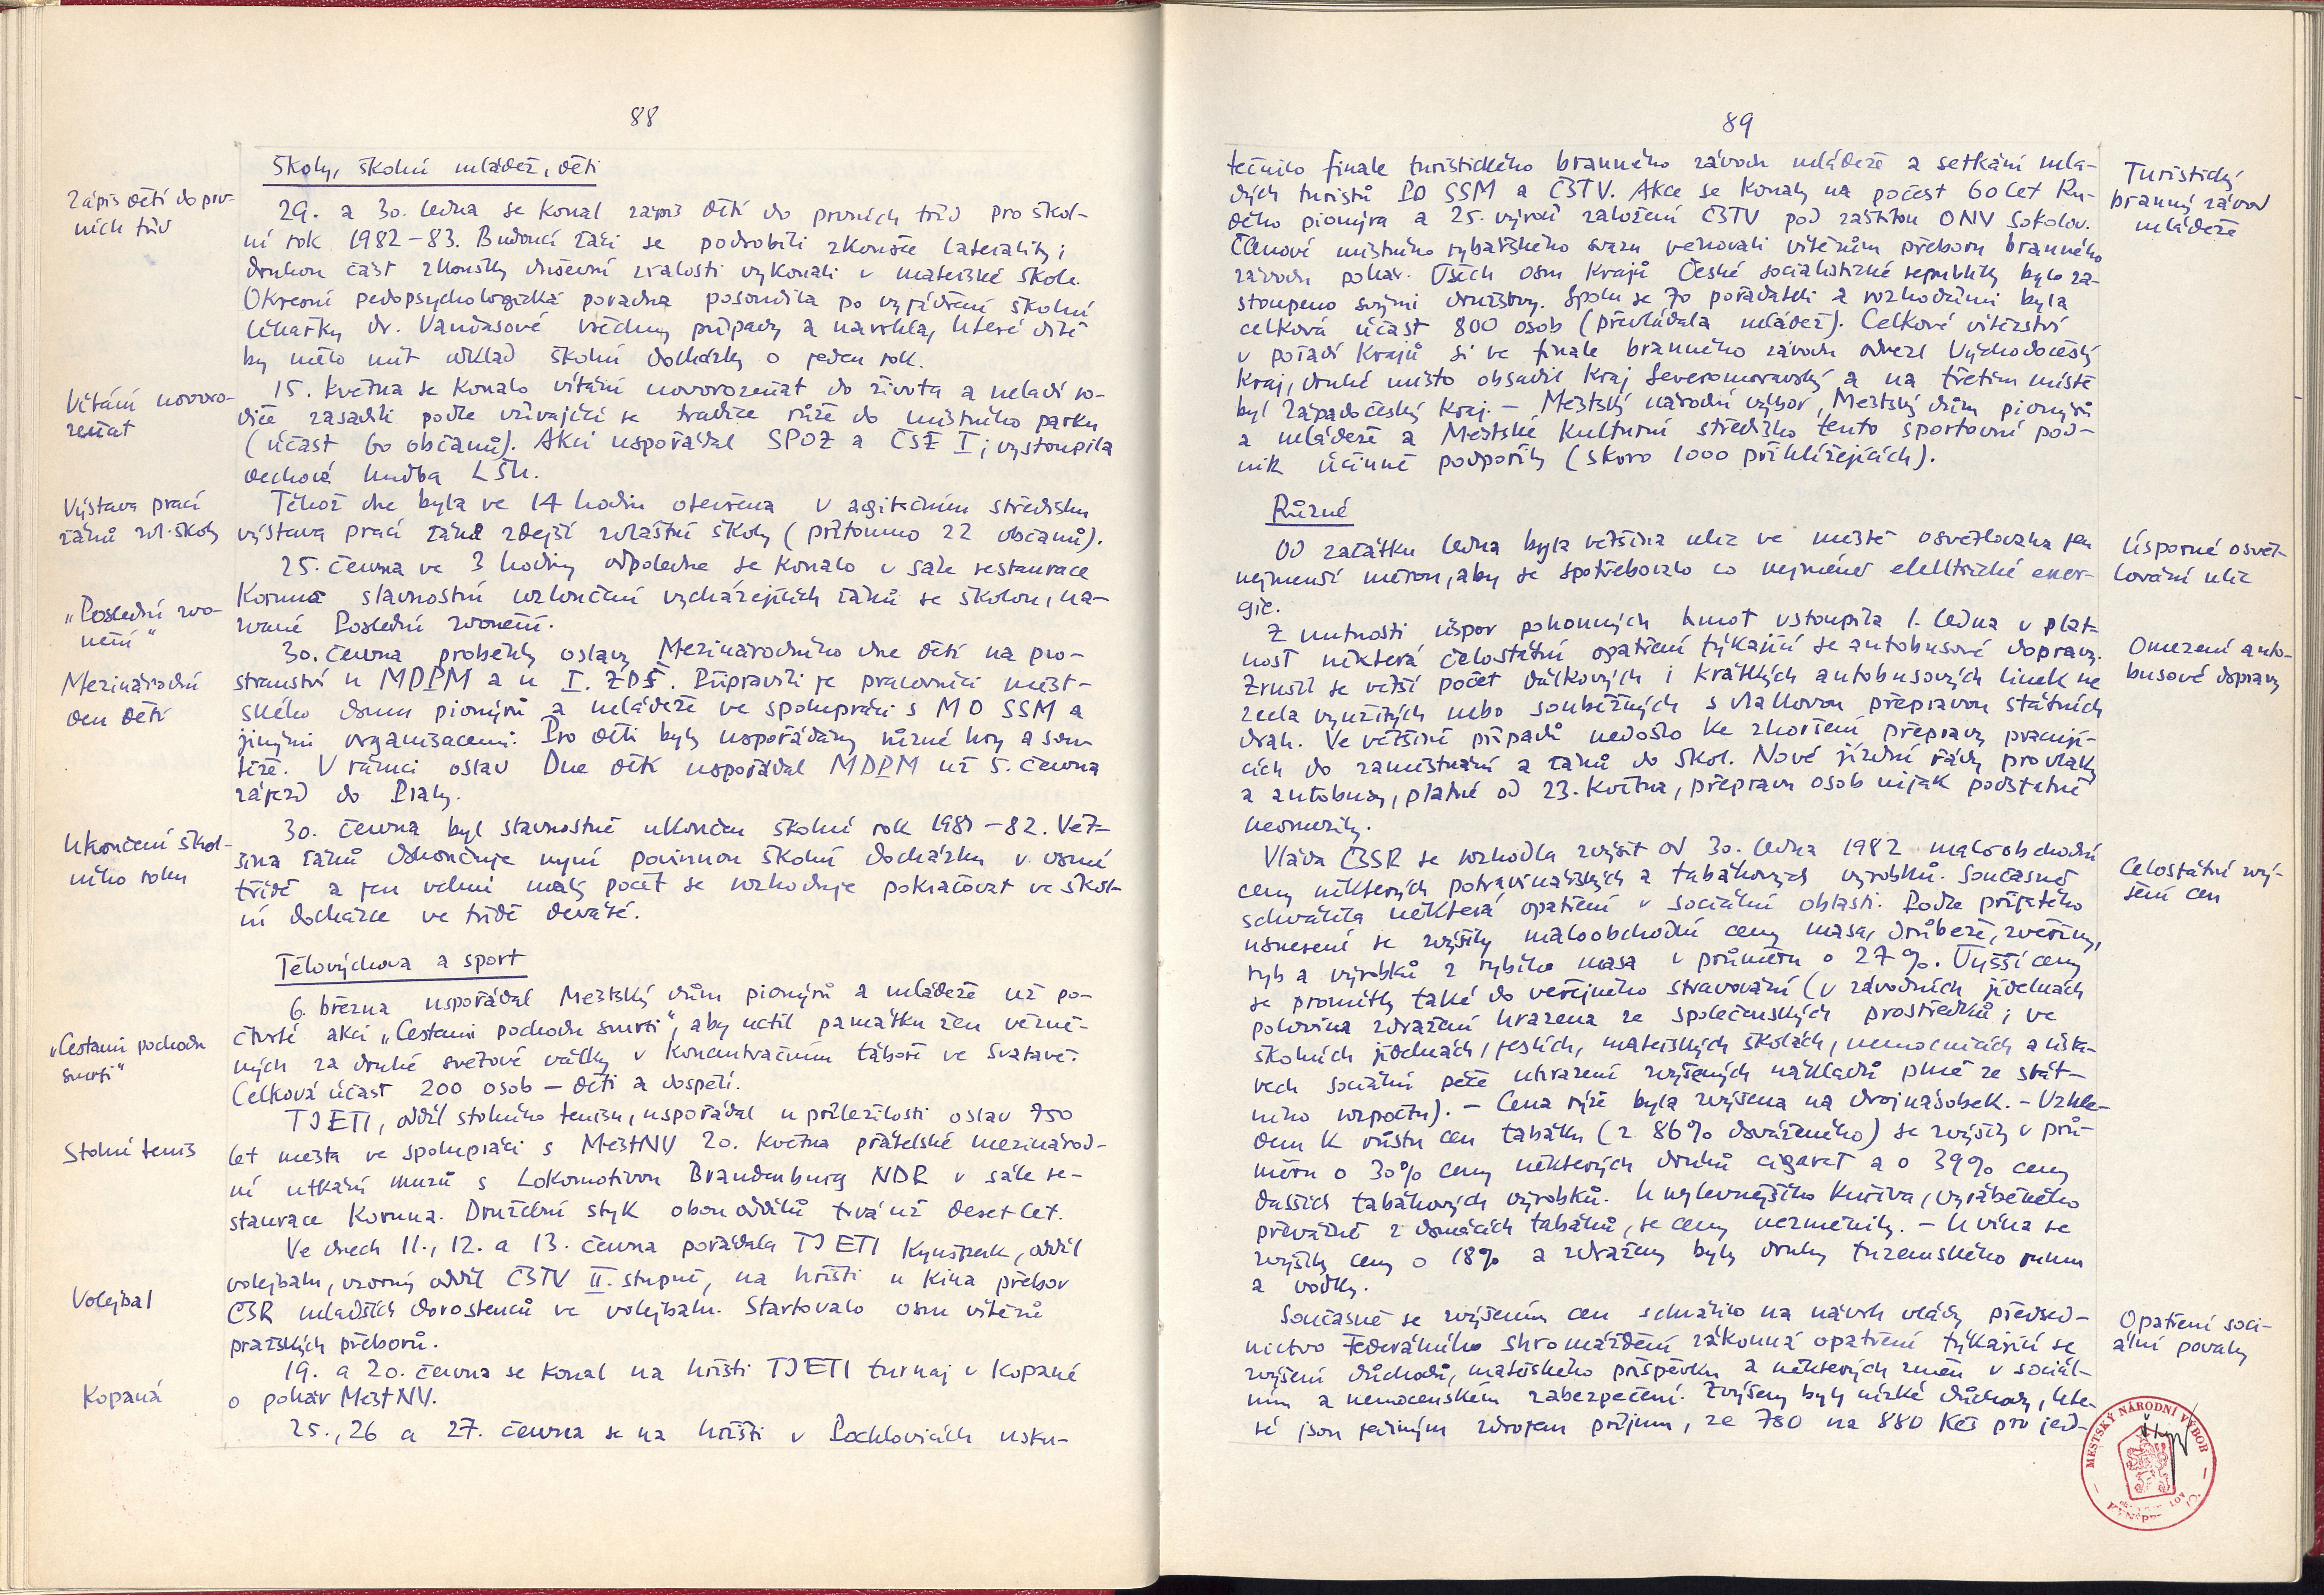 88
Školy, školní mládež, děti
Zápis dětí do prv-
ních tříd
29. a 30. ledna se konal zápis dětí do prvních tříd pro škol-
ní rok 1982-83. Budoucí žáci se podrobili zkoušce laterality;
druhou část zkoušky duševní zralosti vykonali v mateřské škole.
Okresní pedopsychologická poradna posoudila po vyjádření školní
lékařky dr. Vančasové všechny případy a navrhla, které dítě
by mělo mít odklad školní docházky o jeden rok.
Vítání novoro-
zeňat
15. května se konalo vítání novorozeňat do života a mladí ro-
diče zasadili podle vžívající se tradice růže do místního parku
(účast 60 občanů). Akci uspořádal SPOZ a ČSŽ I; vystoupila
dechová hudba LŠU.
Výstava prací
žáků zvl. školy
Téhož dne byla ve 14 hodin otevřena v agitačním středisku
výstava prací žáků zdejší zvláštní školy (přítomno 22 občanů).
25. června ve 3 hodiny odpoledne se konalo v sále restaurace
„Poslední zvo-
nění“
Koruna slavnostní rozloučení vycházejících žáků se školou, na-
zvané Poslední zvonění.
Mezinárodní
den dětí
30. června proběhly oslavy Mezinárodního dne dětí na pro-
stranství u MDPM a u I. ZDŠ. Připravili je pracovníci měst-
ského domu pionýrů a mládeže ve spolupráci s MO SSM a
jinými organizacemi. Pro děti byly uspořádány různé hry a sou-
těže. V rámci oslav Dne dětí uspořádal MDPM už 5. června
zájezd do Prahy.
Ukončení škol-
ního roku
30. června byl slavnostně ukončen školní rok 1981-82. Vět-
šina žáků dokončuje nyní povinnou školní docházku v osmé
třídě a jen velmi malý počet se rozhoduje pokračovat ve škol-
ní docházce ve třídě deváté.
Tělovýchova a sport
6. března uspořádal Městský dům pionýrů a mládeže už po-
„Cestami pochodu
smrti“
čtvrté akci „Cestami pochodu smrti“, aby uctil památku žen vězně-
ných za druhé světové války v koncentračním táboře ve Svatavě.
Celková účast 200 osob — děti a dospělí.
TJ ETI, oddíl stolního tenisu, uspořádal u příležitosti oslav 750
Stolní tenis
let města ve spolupráci s MěstNV 20. května přátelské mezinárod-
ní utkání mužů s Lokomotivou Brandenburg NDR v sále re-
staurace Koruna. Družební styk obou oddílů trvá už deset let.
Ve dnech 11., 12. a 13. června pořádala TJ ETI Kynšperk, oddíl
Volejbal
volejbalu, vzorný oddíl ČSTV II. stupně, na hřišti u kina přebor
ČSR mladších dorostenců ve volejbalu. Startovalo osm vítězů
pražských přeborů.
19. a 20. června se konal na hřišti TJ ETI turnaj v kopané
Kopaná
o pohár MěstNV.
25., 26 a 27. června se na hřišti v Pochlovicích usku-
89
tečnilo finále turistického branného závodu mládeže a setkání mla-
Turistický
branný závod
mládeže
dých turistů PO SSM a ČSTV. Akce se konaly na počest 60 let Ru-
dého pionýra a 25. výročí založení ČSTV pod záštitou ONV Sokolov.
Členové místního rybářského svazu věnovali vítězům přeboru branného
závodu pohár. Všech osm krajů České socialistické republiky bylo za-
stoupeno svými družstvy. Spolu se 70 pořadateli a rozhodčími byla
celková účast 800 osob (převládala mládež). Celkové vítězství
v pořadí krajů si ve finále branného závodu odvezl Východočeský
kraj, druhé místo obsadil kraj Severomoravský a na třetím místě
byl Západočeský kraj. — Městský národní výbor, Městský dům pionýrů
a mládeže a Městské kulturní středisko tento sportovní pod-
nik účinně podpořily (skoro 1000 přihlížejících).
Různé
Od začátku ledna byla většina ulic ve městě osvětlována jen
Úsporné osvět-
lování ulic
nejmenší měrou, aby se spotřebovalo co nejméně elektrické ener-
gie.
Z nutnosti úspor pohonných hmot vstoupila 1. ledna v plat-
Omezení auto-
busové dopravy
nost některá celostátní opatření týkající se autobusové dopravy.
Zrušil se větší počet dálkových i krátkých autobusových linek ne
zcela využitých nebo souběžných s vlakovou přepravou státních
drah. Ve většině případů nedošlo ke zhoršení přepravy pracují-
cích do zaměstnání a žáků do škol. Nové jízdní řády pro vlaky
a autobusy, platné od 23. května, přepravu osob nijak podstatně
neomezily.
Vláda ČSSR se rozhodla zvýšit od 30. ledna 1982 maloobchodní
Celostátní zvý-
šení cen
ceny některých potravinářských a tabákových výrobků. Současně
schválila některá opatření v sociální oblasti. Podle přijatého
usnesení se zvýšily maloobchodní ceny masa, drůbeže, zvěřiny,
ryb a výrobků z rybího masa v průměru o 27 %. Vyšší ceny
se promítly také do veřejného stravování (v závodních jídelnách
polovina zdražení hrazena ze společenských prostředků; ve
školních jídelnách, jeslích, mateřských školách, nemocnicích a ústa-
vech sociální péče uhrazení zvýšených nákladů plně ze stát-
ního rozpočtu). — Cena rýže byla zvýšena na dvojnásobek. — Vzhle-
dem k růstu cen tabáku (z 86 % dováženého) se zvýšily v prů-
měru o 30 % ceny některých druhů cigaret a o 39 % ceny
dalších tabákových výrobků. U nejlevnějšího kuřiva, vyráběného
převážně z domácích tabáků, se ceny nezměnily. — U vína se
zvýšily ceny o 18 % a zdraženy byly druhy tuzemského rumu
a vodky.
Současně se zvýšením cen schválilo na návrh vlády předsed-
Opatření soci-
ální povahy
nictvo Federálního shromáždění zákonná opatření týkající se
zvýšení důchodů, mateřského příspěvku a některých změn v sociál-
ním a nemocenském zabezpečení. Zvýšeny byly nízké důchody, kte-
ré jsou jediným zdrojem příjmu, ze 780 na 880 Kčs pro jed-
MĚSTSKÝ NÁRODNÍ VÝBOR